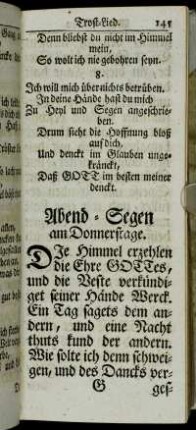 Trost-Lied. 145
Denn bliebst du nicht im Himmel
mein,
So wolt ich nie gebohren seyn.
8.
Ich will mich über nichts betrüben,
In deine Hände hast du mich
Zu Heyl und Segen angeschrie-
ben.
Drum sieht die Hoffnung bloß
auf dich,
Und denckt im Glauben unge-
kränckt,
Daß GOTT im besten meiner
denckt.
Abend-Segen
am Donnerstage.
DIe Himmel erzehlen
die Ehre GOTTes,
und die Veste verkündi-
get seiner Hände Werck.
Ein Tag sagets dem an-
dern, und eine Nacht
thuts kund der andern.
Wie solte ich denn schwei-
gen, und des Dancks ver-
G ges-